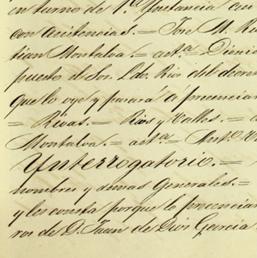 en turno de 1.ª Instancia con
con asistencias. = José M. Ru
tian Montalva. = act.ª Dioni
puesto de Sor. Ldo. Rios del decre
que lo oyó y parará á presencia
= Rivas. = Rios y Valles. = a
Montalva. = act.ª = Ant.º
Ynterrogatorio. =
nombres y demas Generales. =
y les consta porque lo presencia
ron de D. Juan de Dios Garcia